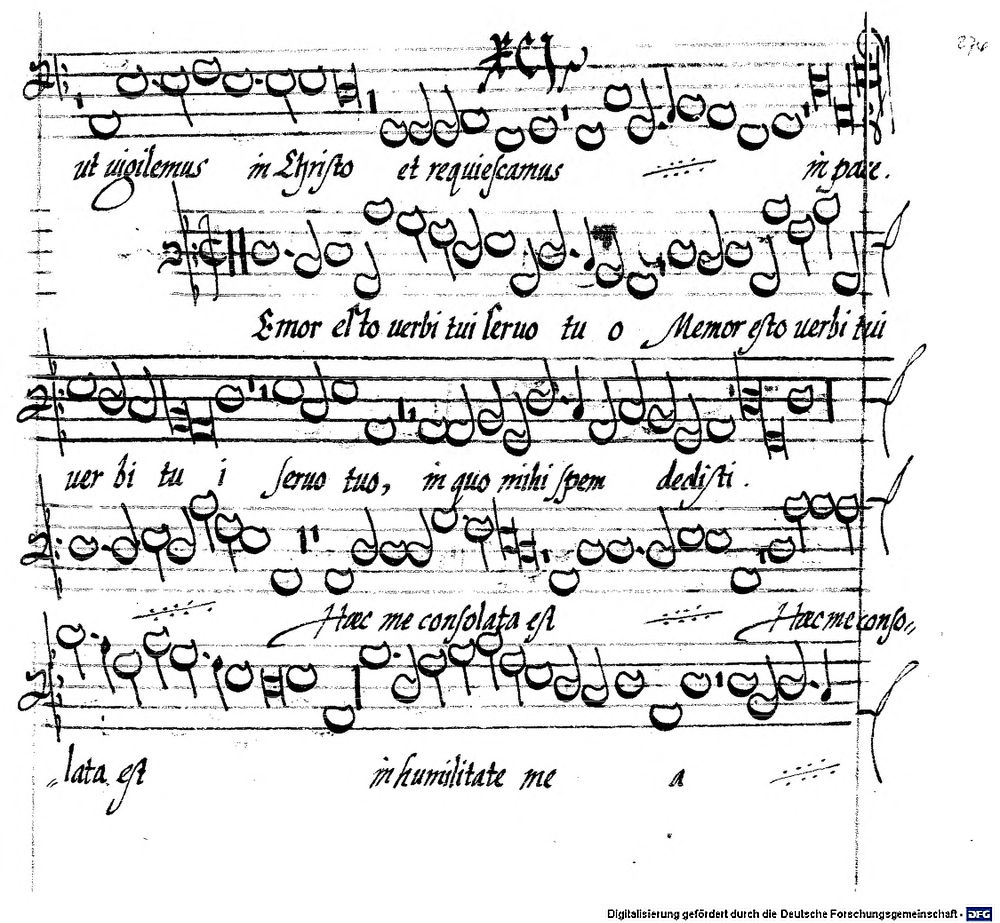 XCI
274
ut uigilemus in Christo et requiescamus in pace.
Emor esto uerbi tui seruo tu o Memor esto uerbi tui
uer bi tu i seruo tuo, in quo mihi spem dedisti.
Hæc me consolata est Hæc me conso,,
,,lata est in humilitate me a
Digitalisierung gefördert durch die Deutsche Forschungsgemeinschaft - DFG